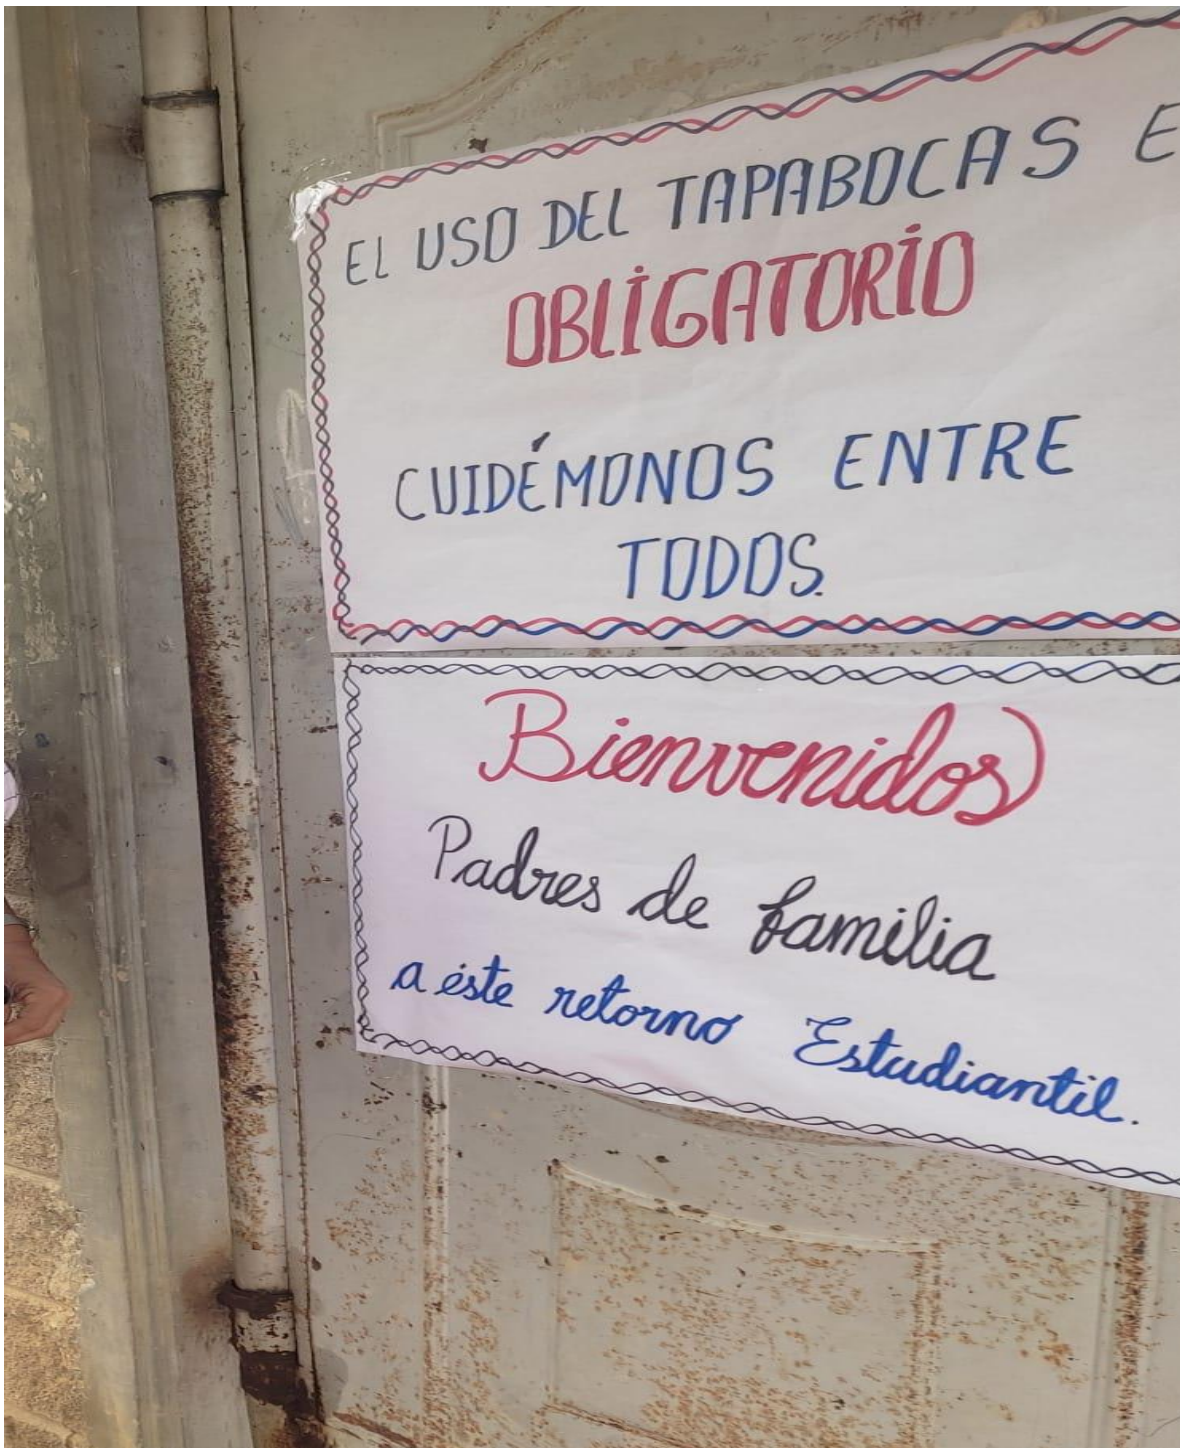 EL USO DEL TAPABOCAS E
OBLIGATORIO
CUIDÉMONOS ENTRE
TODOS.
Bienvenidos
Padres de familia
a éste retorno Estudiantil.